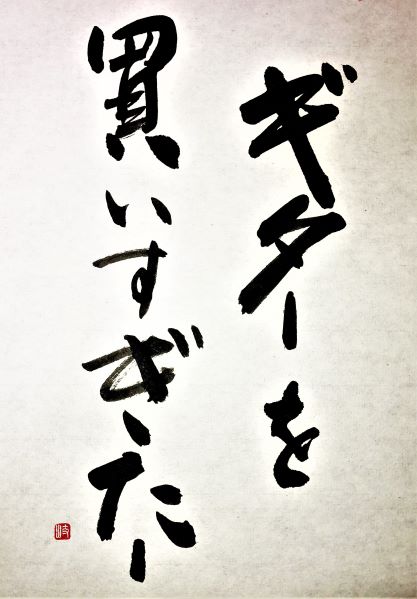 ギターを
買いすぎたー